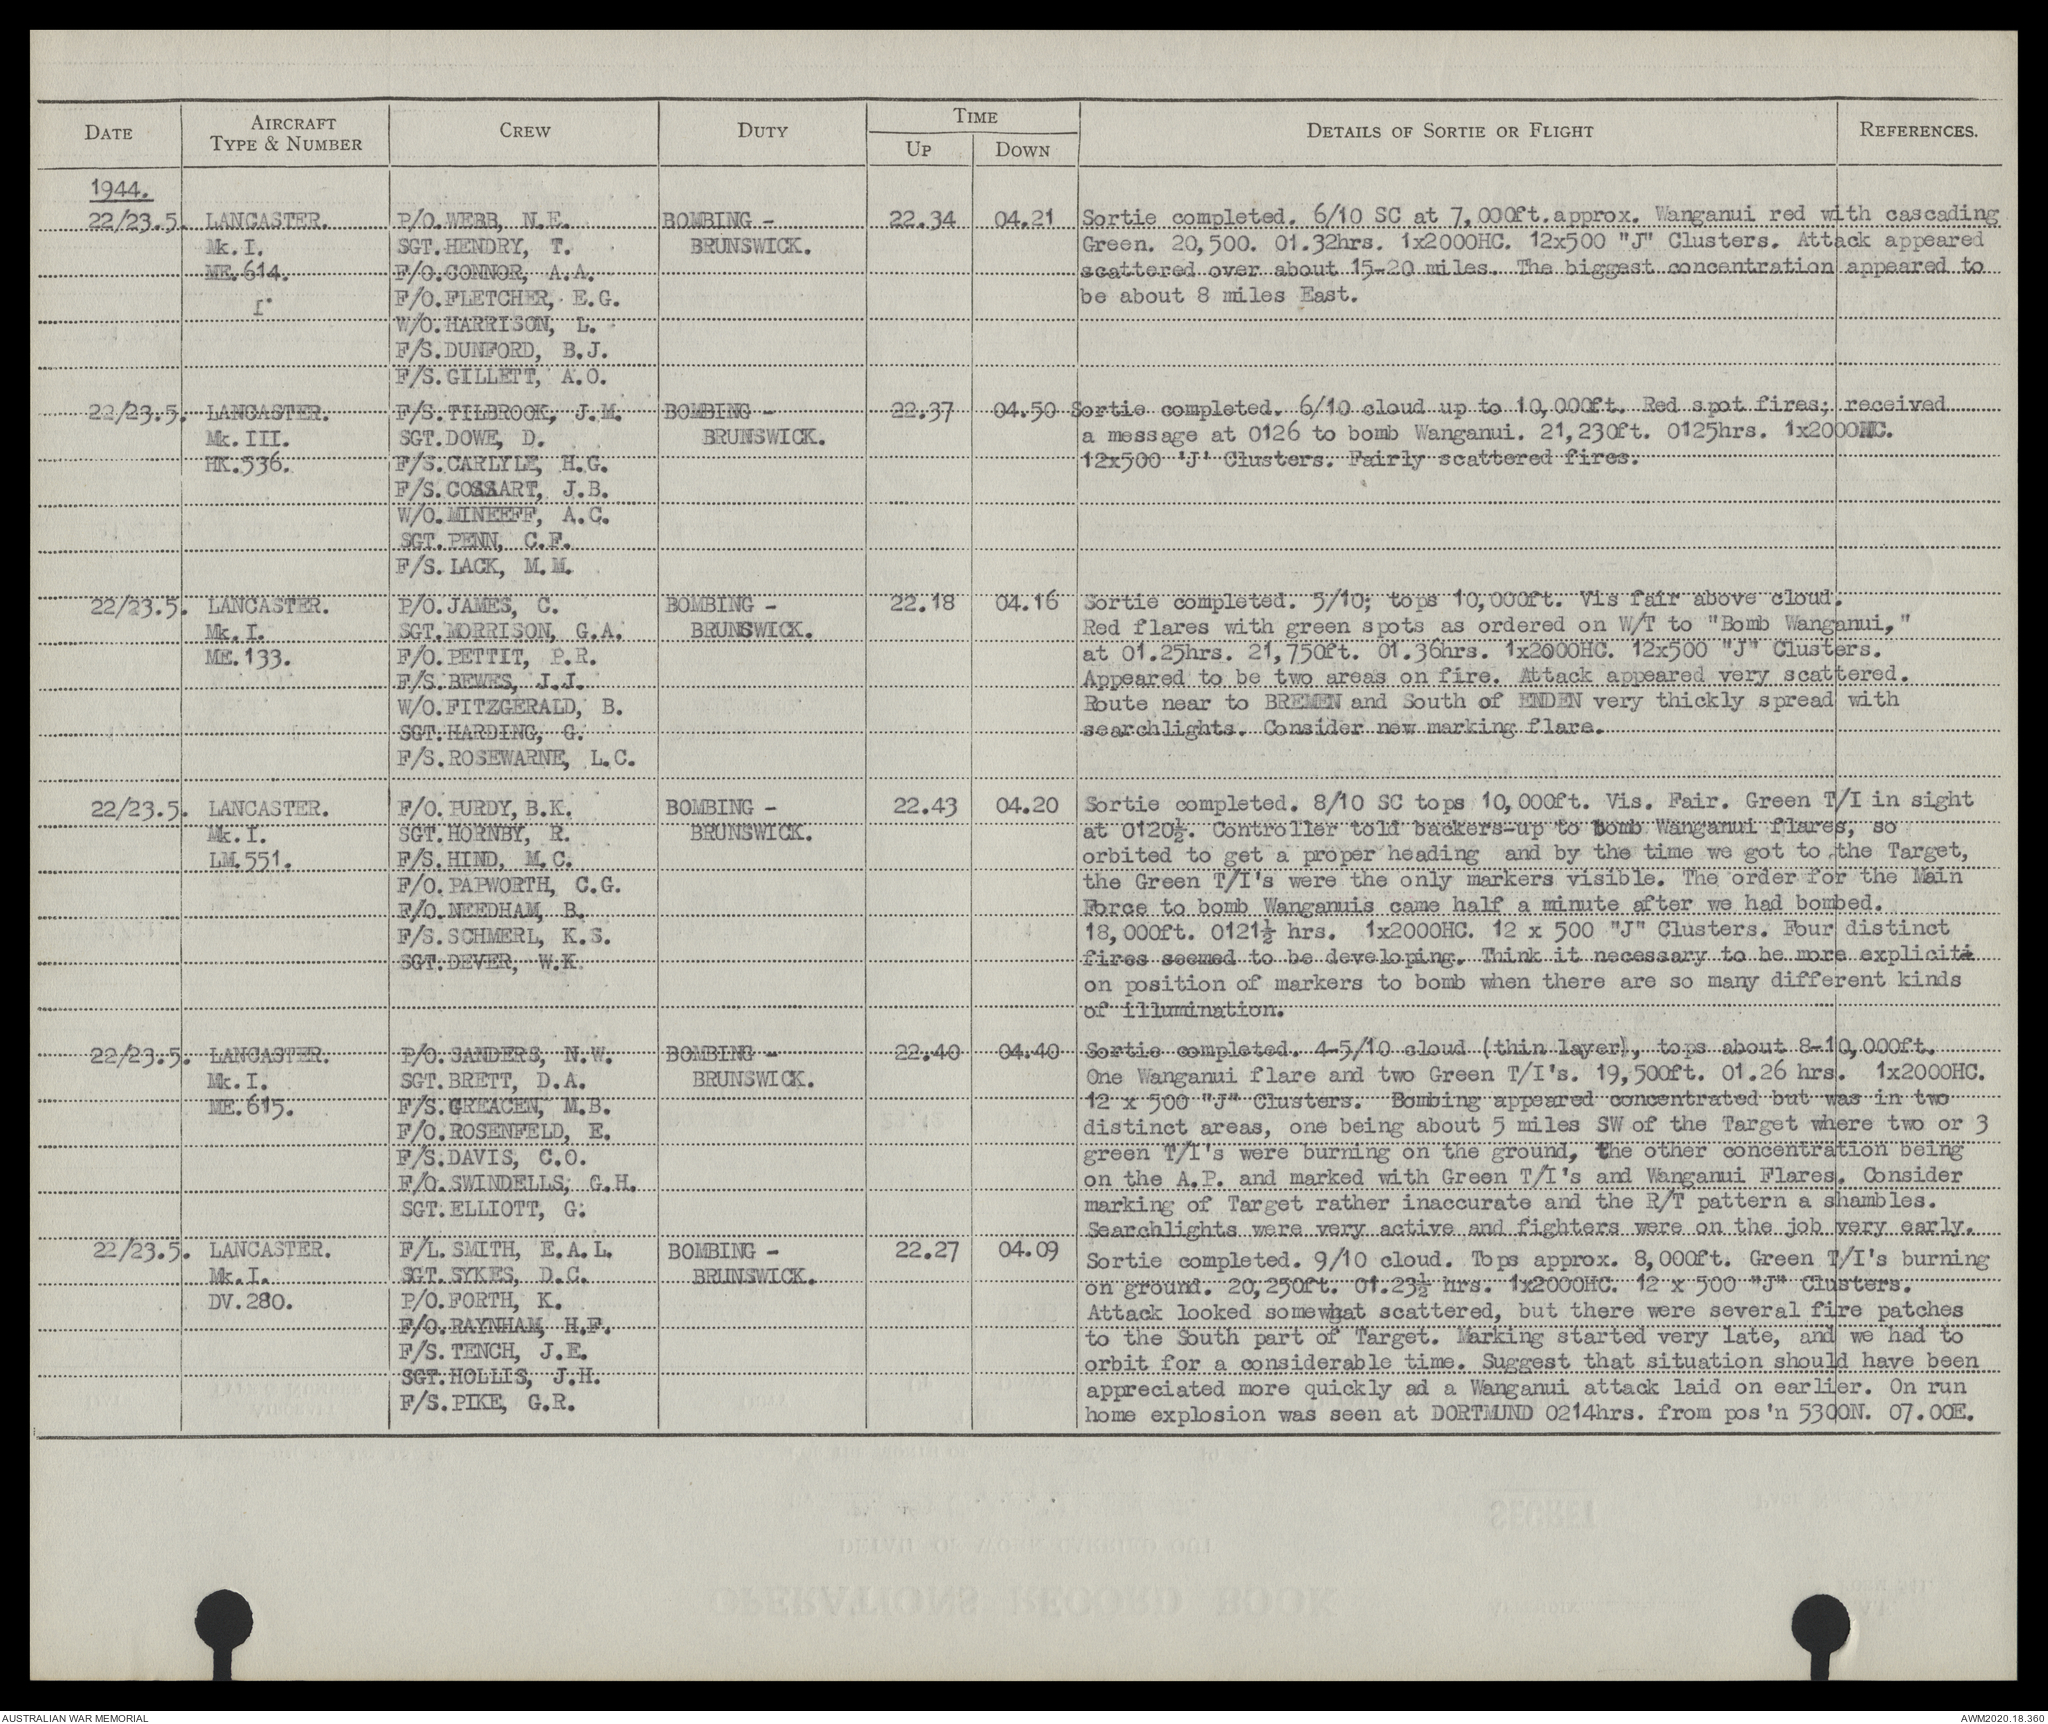 DATE AIRCRAFT TYPE & NUMBER CREW DUTY TIME UP DOWN DETAILS OF SORTIE OR FLIGHT REFERENCES.
1944.
22/23.5. LANCASTER. P/O.WEBB, N.E. BOMBING - 22.34 04.21 Sortie completed. 6/10 SC at 7,000ft.approx. Wanganui red with cascading
Mk.I. SGT.HENDRY, T. BRUNSWICK. Green. 20,500. 01.32hrs. 1x2000HC. 12x500 "J" Clusters. Attack appeared
ME.614. F/O.CONNOR, A.A. scattered over about 15-20 miles. The biggest concentration appeared to
F/O.FLETCHER, E.G. be about 8 miles East.
W/O.HARRISON, L.
F/S.DUNFORD, B.J.
F/S.GILLETT, A.O.
22/23.5. LANCASTER. F/S.TILBROOK, J.M. BOMBING - 22.37 04.50 Sortie completed. 6/10 cloud up to 10,000ft. Red spot fires; received
Mk.III. SGT.DOWE, D. BRUNSWICK. a message at 0126 to bomb Wanganui. 21,230ft. 0125hrs. 1x2000HC.
HK.536. F/S.CARLYLE, H.G. 12x500 'J' Clusters. Fairly scattered fires.
F/S.COSSART, J.B.
W/O.MINEEFF, A.C.
SGT.PENN, C.F.
F/S.LACK, M.M.
22/23.5. LANCASTER. P/O.JAMES, C. BOMBING - 22.18 04.16 Sortie completed. 5/10; tops 10,000ft. Vis fair above cloud.
Mk.I. SGT.MORRISON, G.A. BRUNSWICK. Red flares with green spots as ordered on W/T to "Bomb Wanganui,"
ME.133. F/O.PETTIT, P.R. at 01.25hrs. 21,750ft. 01.36hrs. 1x2000HC. 12x500 "J" Clusters.
F/S.BEWES, J.J. Appeared to be two areas on fire. Attack appeared very scattered.
W/O.FITZGERALD, B. Route near to BREMEN and South of ENDEN very thickly spread with
SGT.HARDING, G. searchlights. Consider new marking flare.
F/S.ROSEWARNE, L.C.
22/23.5. LANCASTER. F/O.PURDY, B.K. BOMBING - 22.43 04.20 Sortie completed. 8/10 SC tops 10,000ft. Vis. Fair. Green T/I in sight
Mk.I. SGT.HORNBY, R. BRUNSWICK. at 0120½. Controller told backers-up to bomb Wanganui flares, so
LM.551. F/S.HIND, M.C. orbited to get a proper heading and by the time we got to the Target,
F/O.PAPWORTH, C.G. the Green T/I's were the only markers visible. The order for the Main
F/O.NEEDHAM, B. Force to bomb Wanganuis came half a minute after we had bombed.
F/S.SCHMERL, K.S. 18,000ft. 0121½ hrs. 1x2000HC. 12 x 500 "J" Clusters. Four distinct
SGT.DEVER, W.K. fires seemed to be developing. Think it necessary to be more explicit
on position of markers to bomb when there are so many different kinds
of illumination.
22/23.5. LANCASTER. P/O.SANDERS, N.W. BOMBING - 22.40 04.40 Sortie completed. 4-5/10 cloud (thin layer), tops about 8-10,000ft.
Mk.I. SGT.BRETT, D.A. BRUNSWICK. One Wanganui flare and two Green T/I's. 19,500ft. 01.26 hrs. 1x2000HC.
ME.615. F/S.GREACEN, M.B. 12 x 500 "J" Clusters. Bombing appeared concentrated but was in two
F/O.ROSENFELD, E. distinct areas, one being about 5 miles SW of the Target where two or 3
F/S.DAVIS, C.O. green T/I's were burning on the ground, the other concentration being
F/O.SWINDELLS, G.H. on the A.P. and marked with Green T/I's and Wanganui Flares. Consider
SGT.ELLIOTT, G. marking of Target rather inaccurate and the R/T pattern a shambles.
Searchlights were very active and fighters were on the job very early.
22/23.5. LANCASTER. F/L.SMITH, E.A.L. BOMBING - 22.27 04.09 Sortie completed. 9/10 cloud. Tops approx. 8,000ft. Green T/I's burning
Mk.I. SGT.SYKES, D.C. BRUNSWICK. on ground. 20,250ft. 01.23½ hrs. 1x2000HC. 12 x 500 "J" Clusters.
DV.280. P/O.FORTH, K. Attack looked somewhat scattered, but there were several fire patches
F/O.RAYNHAM, H.F. to the South part of Target. Marking started very late, and we had to
F/S.TENCH, J.E. orbit for a considerable time. Suggest that situation should have been
SGT.HOLLIS, J.H. appreciated more quickly ad a Wanganui attack laid on earlier. On run
F/S.PIKE, G.R. home explosion was seen at DORTMUND 0214hrs. from pos'n 5300N. 07.00E.
AUSTRALIAN WAR MEMORIAL AWM2020.18.360